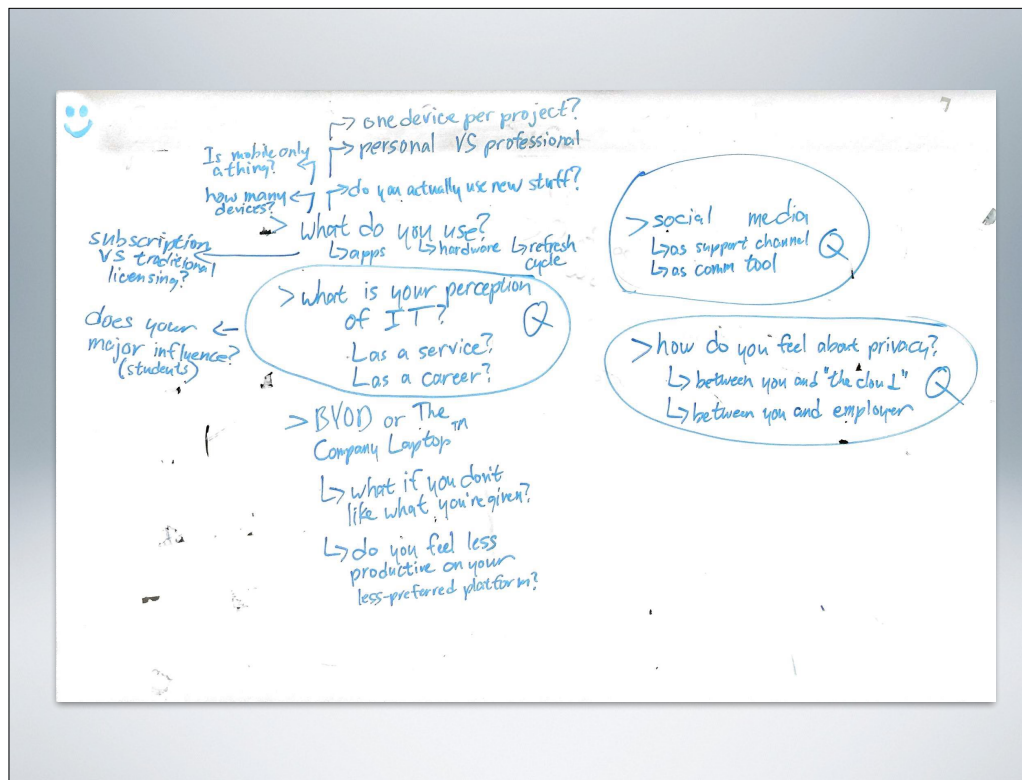 → one device per project?
→ personal VS professional
Is mobile only
a thing?
how many
devices?
→ do you actually use new stuff?
> What do you use?
↳ apps ↳ hardware ↳ refresh
cycle
subscription
VS traditional
licensing?
> what is your perception
of IT?
Q
↳ as a service?
↳ as a career?
does your
major influence?
(students)
> BYOD or The
Company Laptop TM
↳ what if you don't
like what you're given?
↳ do you feel less
productive on your
less-preferred platform?
> social media
↳ as support channel
↳ as comm tool
Q
> how do you feel about privacy?
↳ between you and "the cloud"
↳ between you and employer
Q